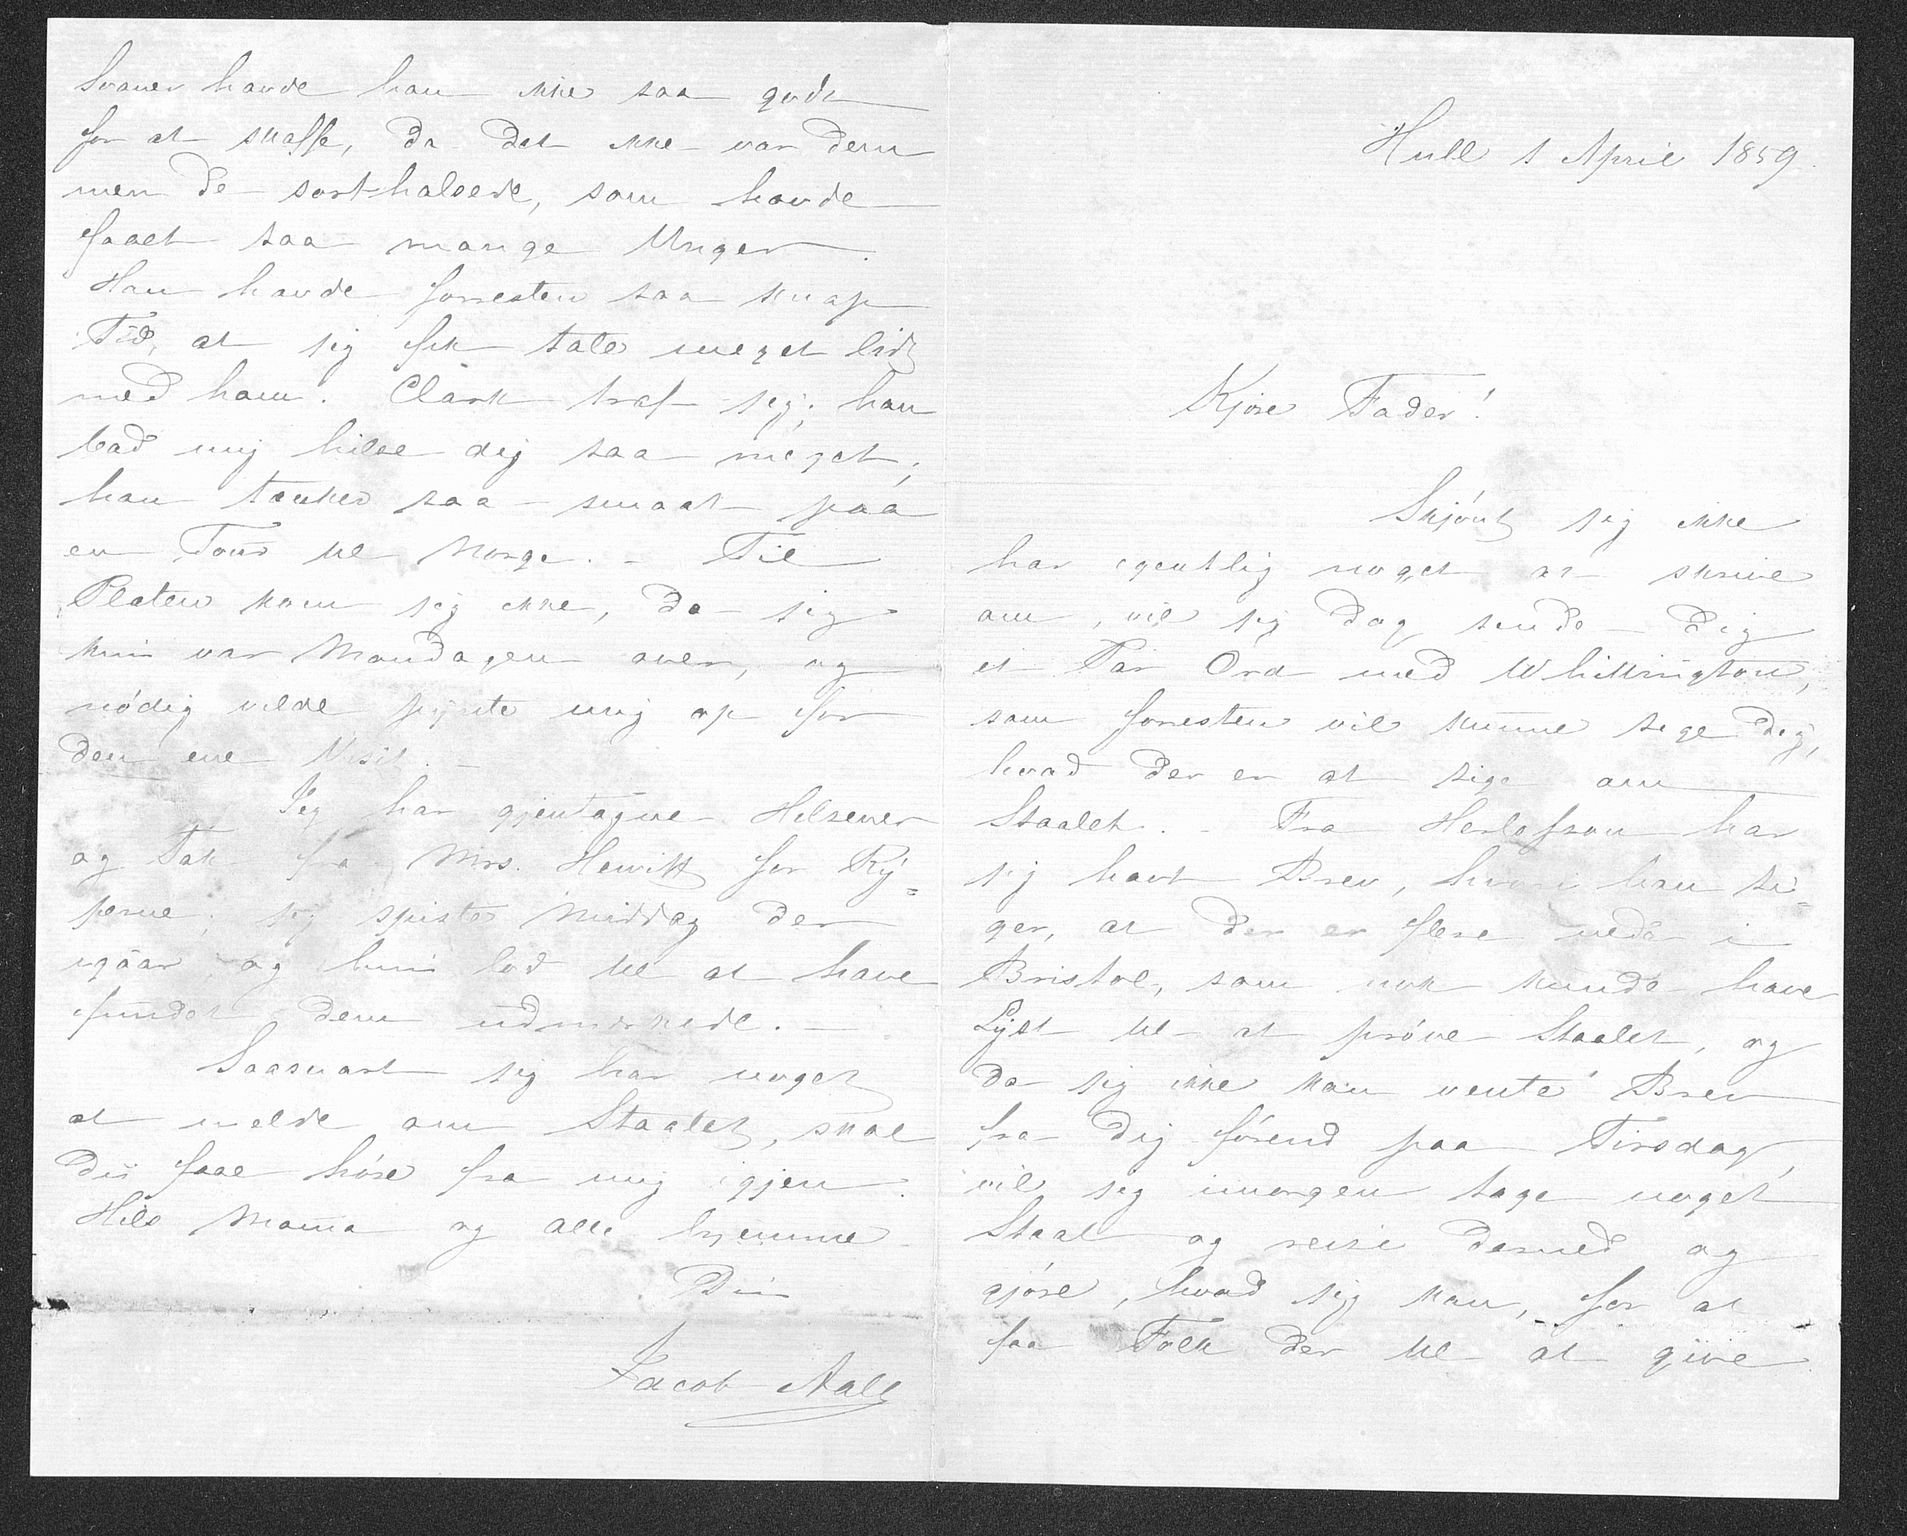 Hull 1 April 1859.
Kjöre Fader!
Skjönt jeg ikke
har egentlig noget at skrive
om, vil jeg dog sende Dig
et Par Ord med Whittington,
som forresten vil kunne sige Dig,
hvad der er at sige om
Staalet. - Fra Herlofson har
jeg havt Brev, hvori han si=
ger, at der er flere nede i
Bristol, som nok kunde have
Lyst til at pröve Staalet, og
da jeg ikke kan vente Brev
fra Dig förend paa Tirsdag,
vil jeg imorgen tage noget
Staal og reise derned og
gjöre, hvad jeg kan, for at
faa Folk der til at give
Svaner havde han ikke saa godt
for at skaffe, da det ikke var dem
men de sort-halsede, som havde
faaet saa mange Unger.
Han havde forresten saa knap
Tid, at jeg fik tale meget lidt
med ham. Clark traf jeg; han
bad mig hilse dig saa meget;
han tænker saa smaat paa
en Tour til Norge. - Til
Platen kom jeg ikke, da jeg
kun var Mandagen over, og
nödig vilde pynte mig op for
den ene Visit. -
Jeg har gjentagne Hilsener
og Tak fra Mrs. Hewitt for Ry=
perne; jeg spiste Middag der
igaar og hun lod til at have
fundet dem udmærkede. -
Saasnart jeg har noget
at melde om Staalet, skal
Du faae höre fra mig igjen.
Hils Mama og alle hjemme
Din
Jacob Aall